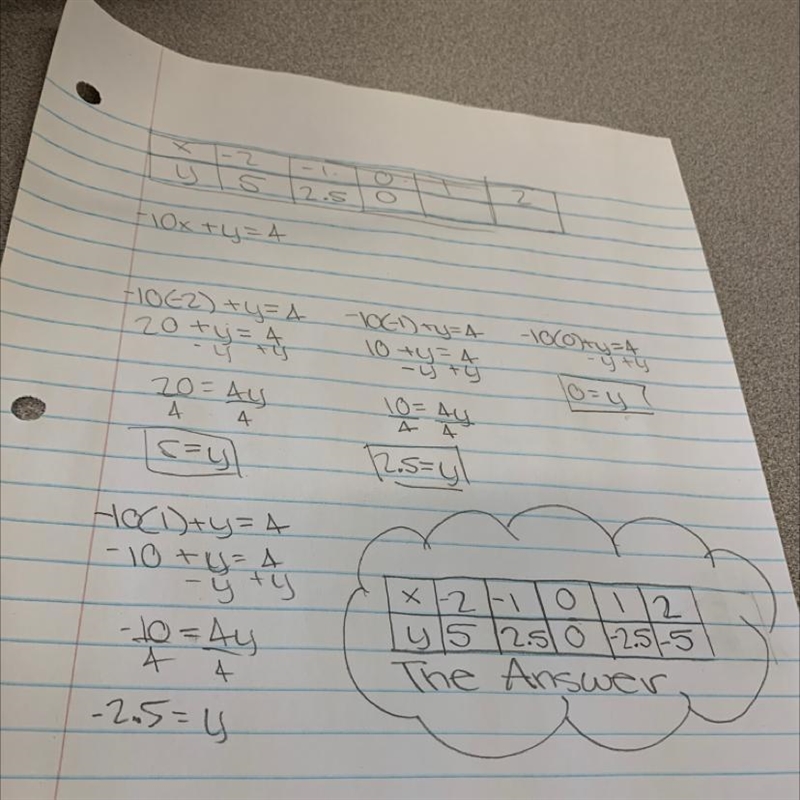 x -2 -1 0 1 2
y 5 2.5 0
-10x + y = 4
-10(-2) + y = 4
20 + y = 4
- y + y
20 = 4y
4 4
5 = y
-10(-1) + y = 4
10 + y = 4
- y + y
10 = 4y
4 4
2.5 = y
-10(0) + y = 4
- y + y
0 = y
-10(1) + y = 4
-10 + y = 4
- y + y
-10 = 4y
4 4
-2.5 = y
x -2 -1 0 1 2
y 5 2.5 0 -2.5 -5
The Answer